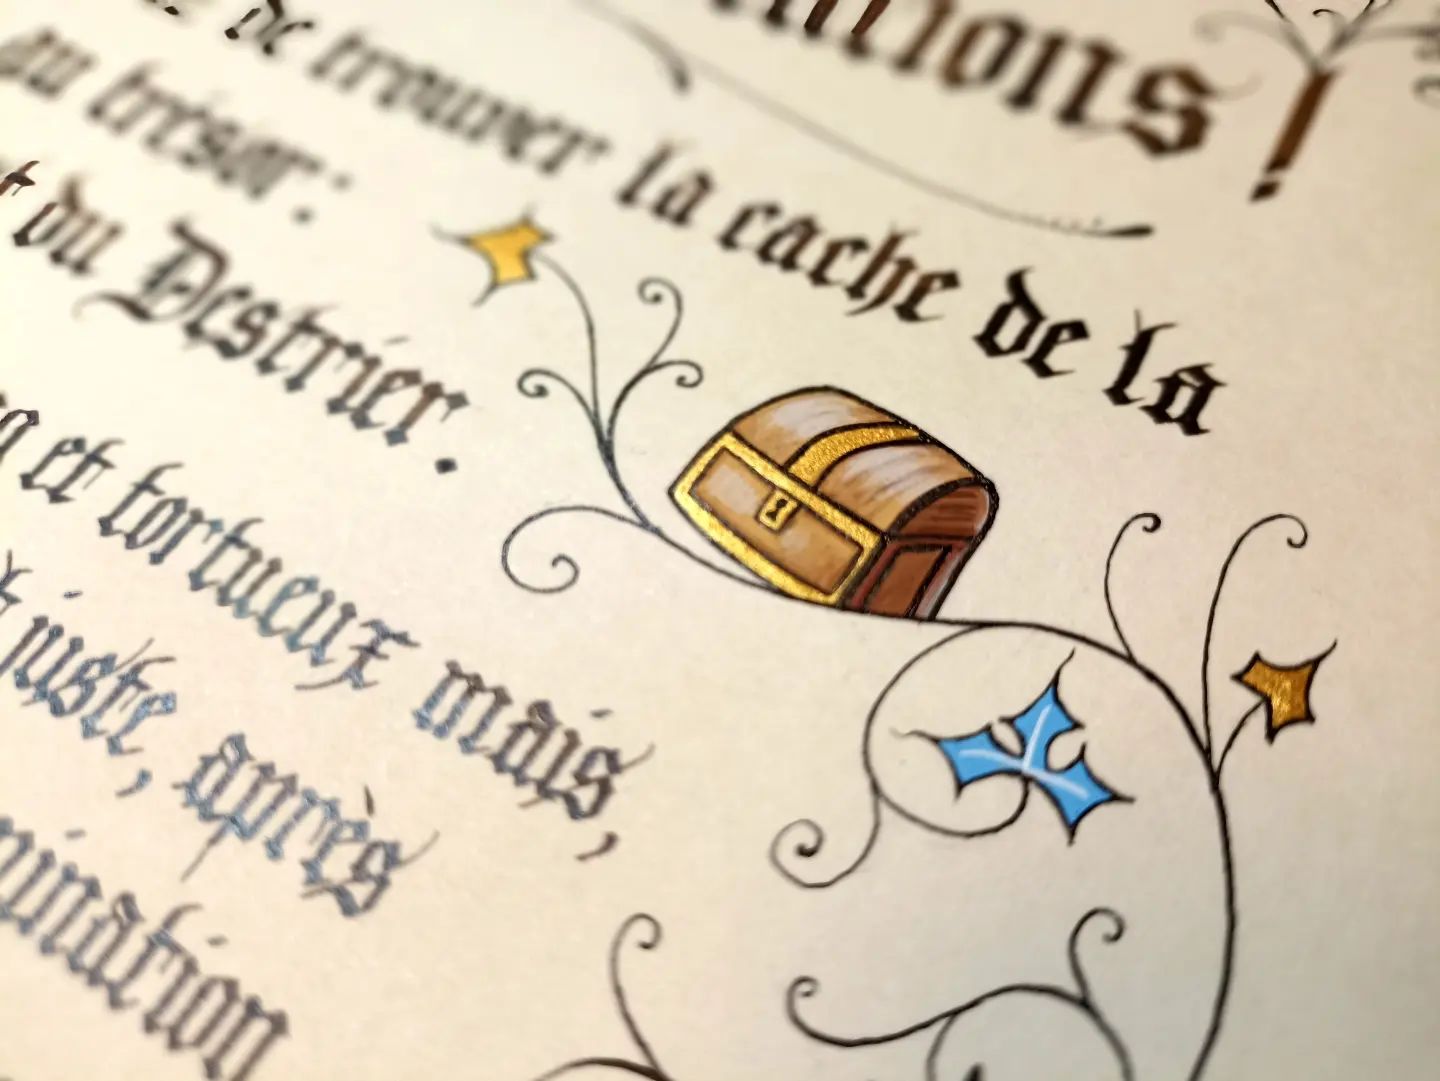 ions !
de trouver la cache de la
au trésor :
du Destrier.
et tortueux mais,
juste, après
mination